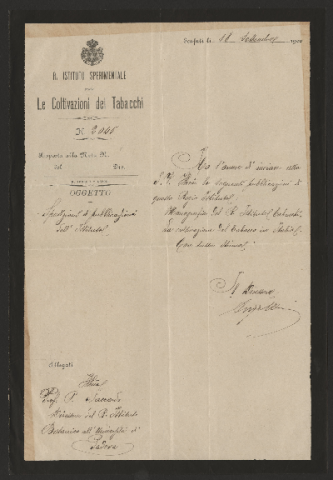 Scafati li 18 Settembre 190
R. ISTITUTO SPERIMENTALE
PER
Le Coltivazioni dei Tabacchi
N. 2046
Risposta alla Nota N.
del Div.
OGGETTO
Spedizione di pubblicazioni
dell' Istituto
Ho l'onore di inviare alla
S. V. Ill.ma le seguenti pubblicazioni di
questo Regio Istituto:
Monografia del R. Istituto
La coltivazione del tabacco in
Il Direttore
Allegati
Ill.mo
Prof. P. Saccardo
Direttore del R. Istituto
Botanico all'Università di
Padova